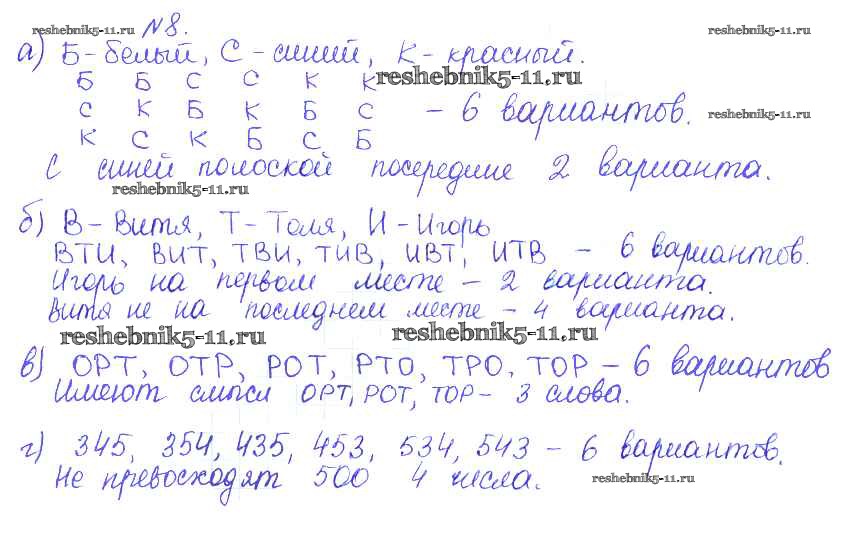 reshebnik5-11.ru №8. reshebnik5-11.ru
а) Б-белый, С-синий, К-красный.
Б Б С С К К reshebnik5-11.ru
С К Б К Б С - 6 вариантов. reshebnik5-11.ru
К С К Б С Б
С синей полоской посередине 2 варианта.
reshebnik5-11.ru
б) В-Витя, Т-Толя, И-Игорь
ВТИ, ВИТ, ТВИ, ТИВ, ИВТ, ИТВ - 6 вариантов.
Игорь на первом месте - 2 варианта.
Витя не на последнем месте - 4 варианта.
reshebnik5-11.ru reshebnik5-11.ru
в) ОРТ, ОТР, РОТ, РТО, ТРО, ТОР - 6 вариантов
Имеют смысл ОРТ, РОТ, ТОР - 3 слова.
г) 345, 354, 435, 453, 534, 543 - 6 вариантов.
Не превосходят 500 4 числа. reshebnik5-11.ru